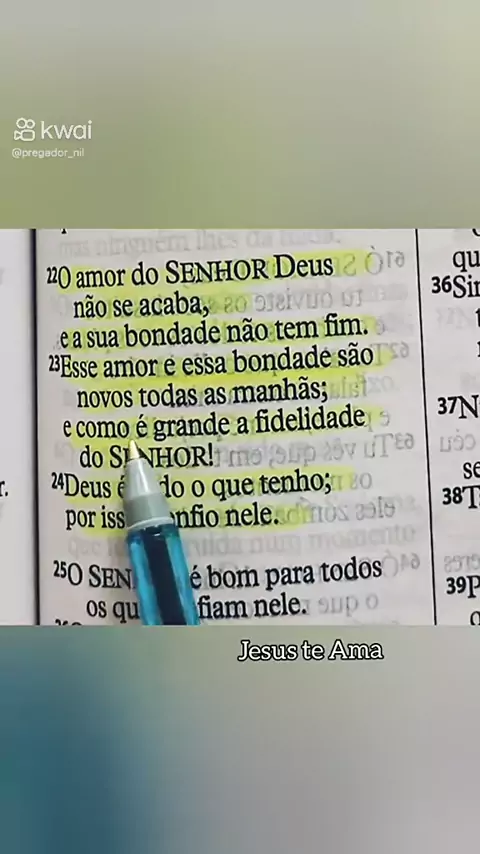 kwai
@pregador_nil
22O amor do SENHOR Deus
não se acaba,
e a sua bondade não tem fim.
23Esse amor e essa bondade são
novos todas as manhãs;
e como é grande a fidelidade
do SENHOR!
24Deus é do o que tenho;
por iss nfio nele.
25O SEN é bom para todos
os qu fiam nele.
qu
36Sin
37N
se
38T
39P
Jesus te Ama